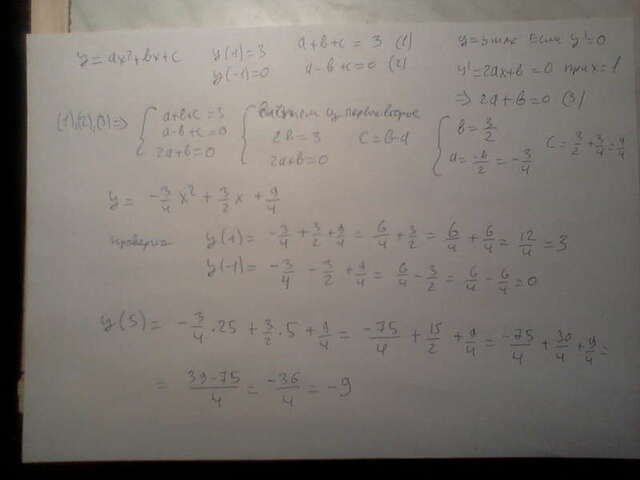 y = ax²+bx+c y(1)=3 a+b+c = 3 (1) y=3 если y'=0
y(-1)=0 a-b+c=0 (2) y'=2ax+b=0 при x=1
⇒ 2a+b=0 (3)
(1),(2),(3)⇒ { a+b+c=3 a-b+c=0 2a+b=0 { вычтем из первого второе 2b=3 c=b-a 2a+b=0 { b=3/2 a=-b/2=-3/4 c=3/2+3/4=9/4
y= -3/4 x² + 3/2 x + 9/4
проверка y(1)= -3/4+3/2+9/4=6/4+3/2=6/4+6/4=12/4=3
y(-1)= -3/4-3/2+9/4=6/4-3/2=6/4-6/4=0
y(5)= -3/4·25+3/2·5+9/4=-75/4+15/2+9/4=-75/4+30/4+9/4=
= 39-75/4=-36/4=-9